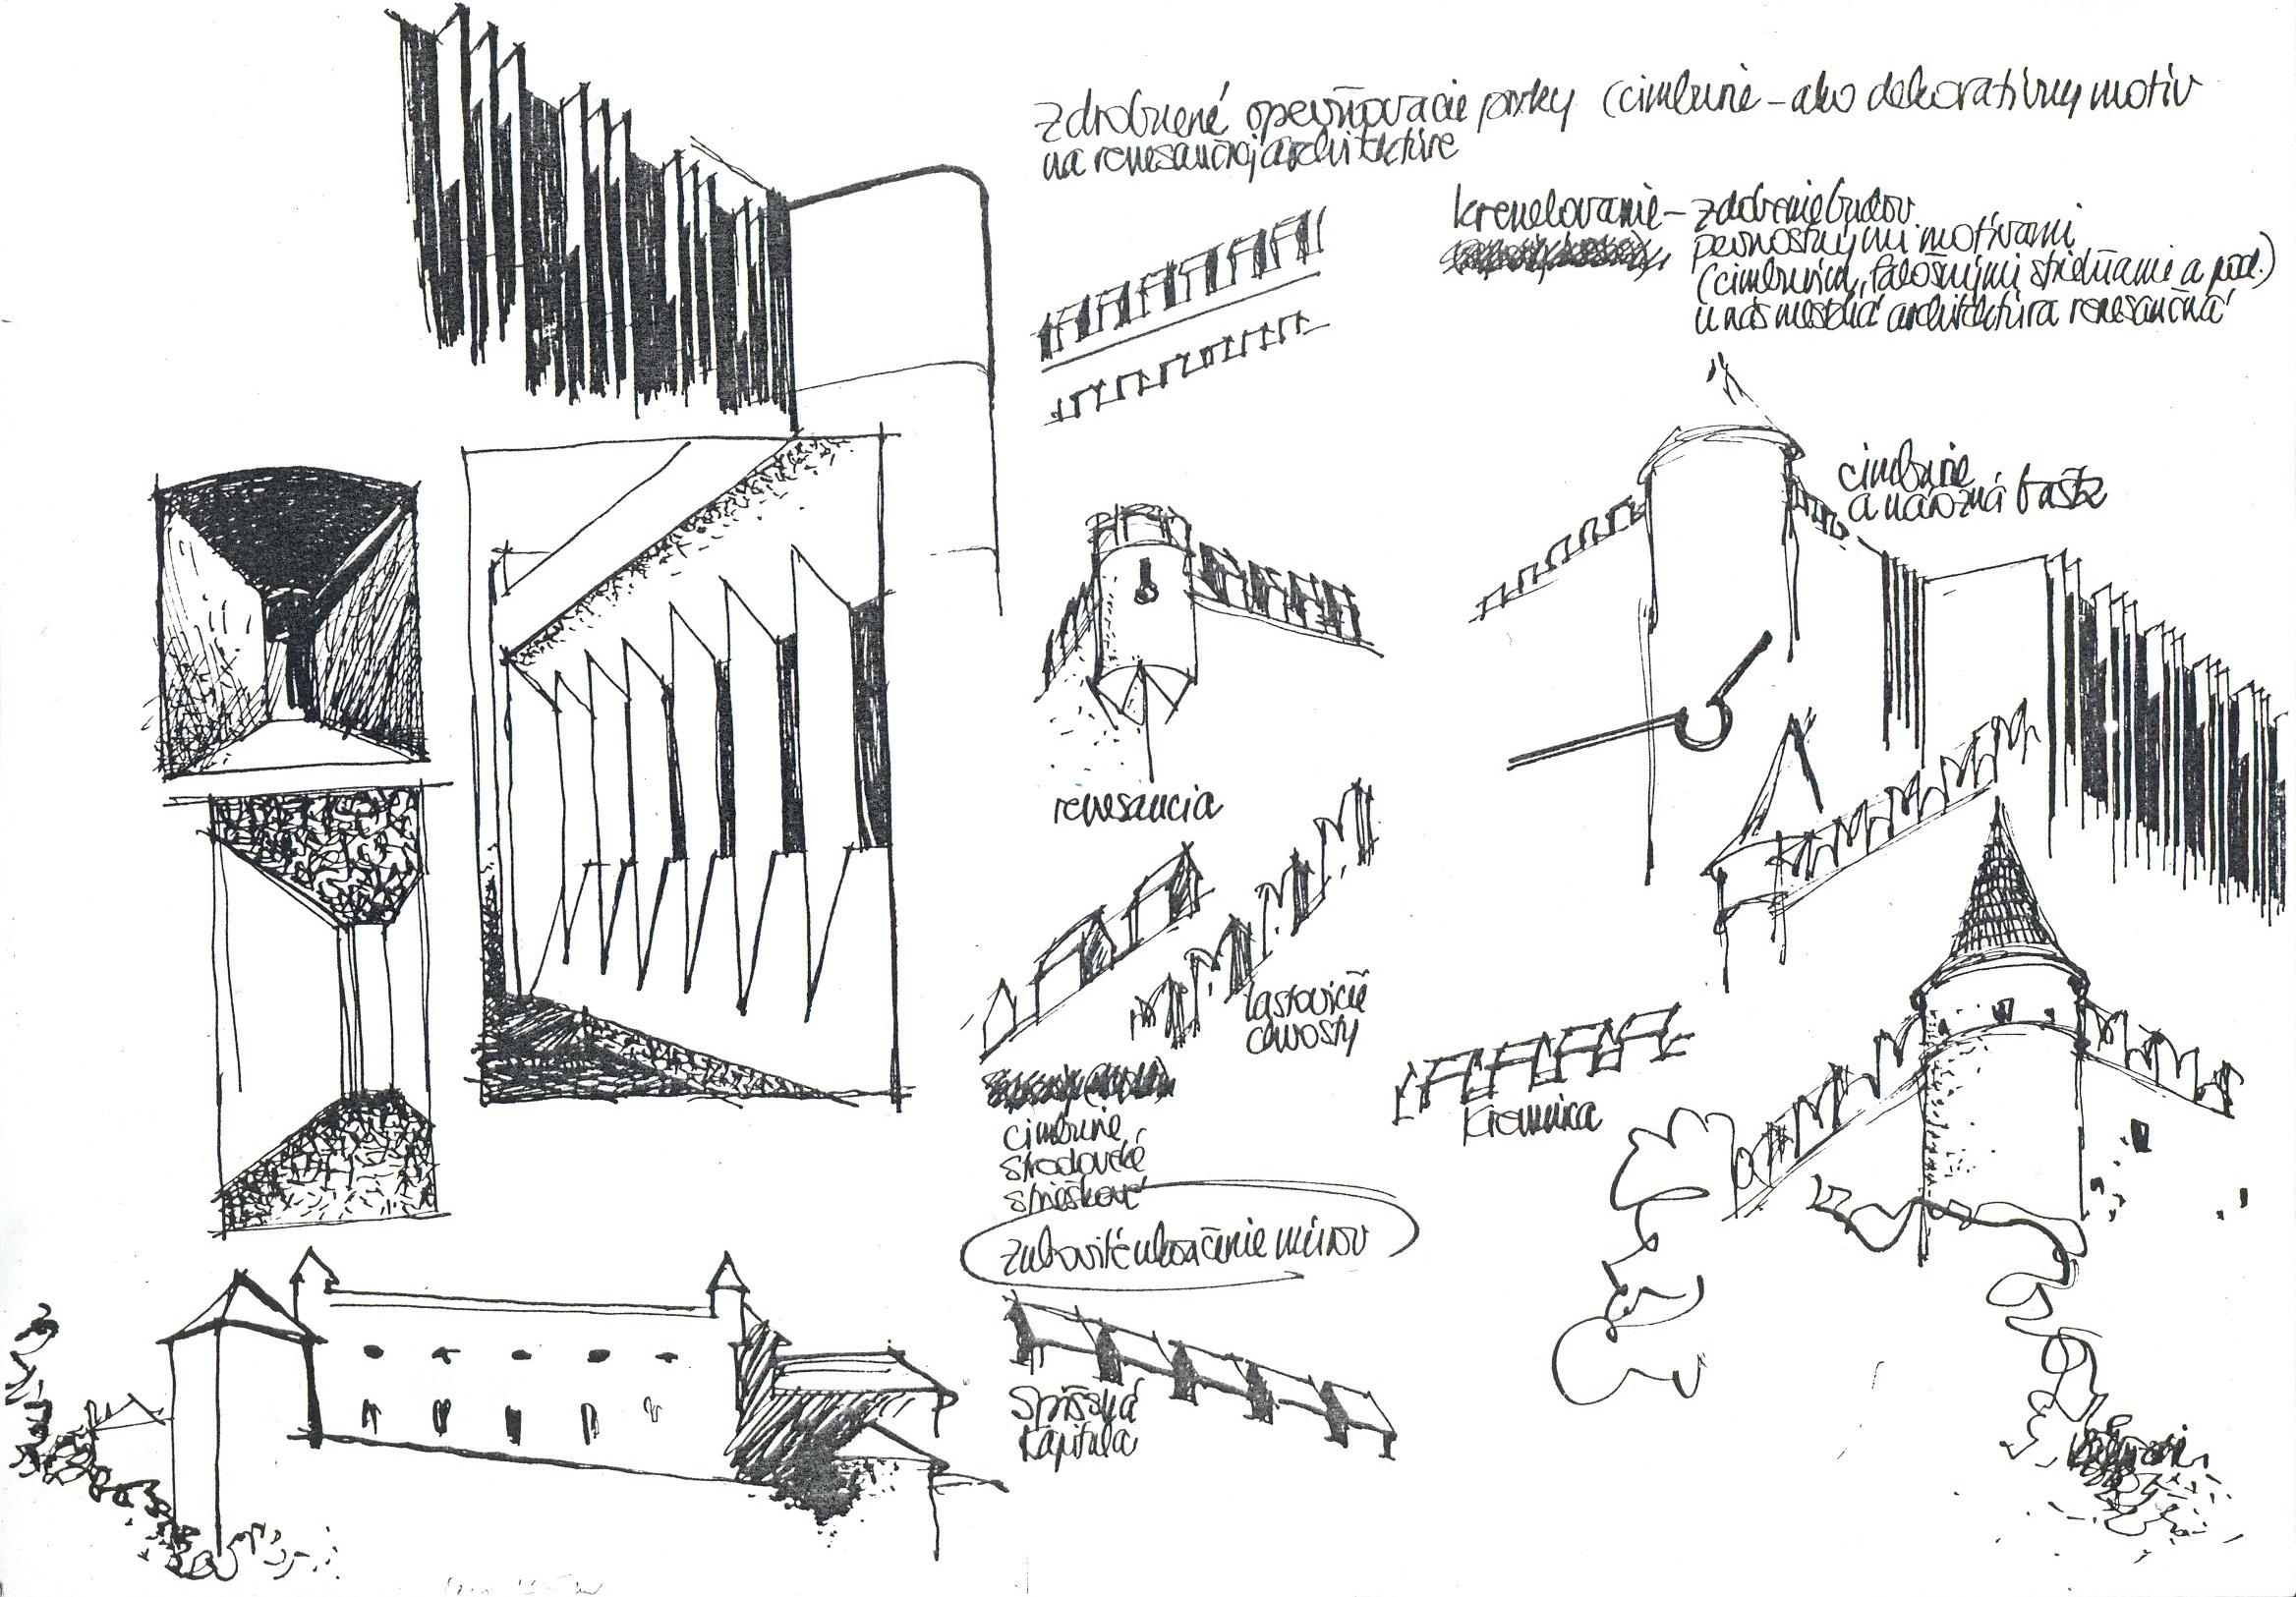 zdrobnené opevňovacie prvky (cimburie - ako dekoratívny motív
na renesančnej architektúre
krenelovanie - zdobenie budov
pevnostnými motívami
(cimburím, falošnými strieľňami a pod.)
u nás mestská architektúra renesančná
cimburie
a nárožná bašta
renesancia
lastovičie
chvosty
cimburie
stredoveké
strieškové
Kremnica
zubovité ukončenie múrov
Spišská
Kapitula